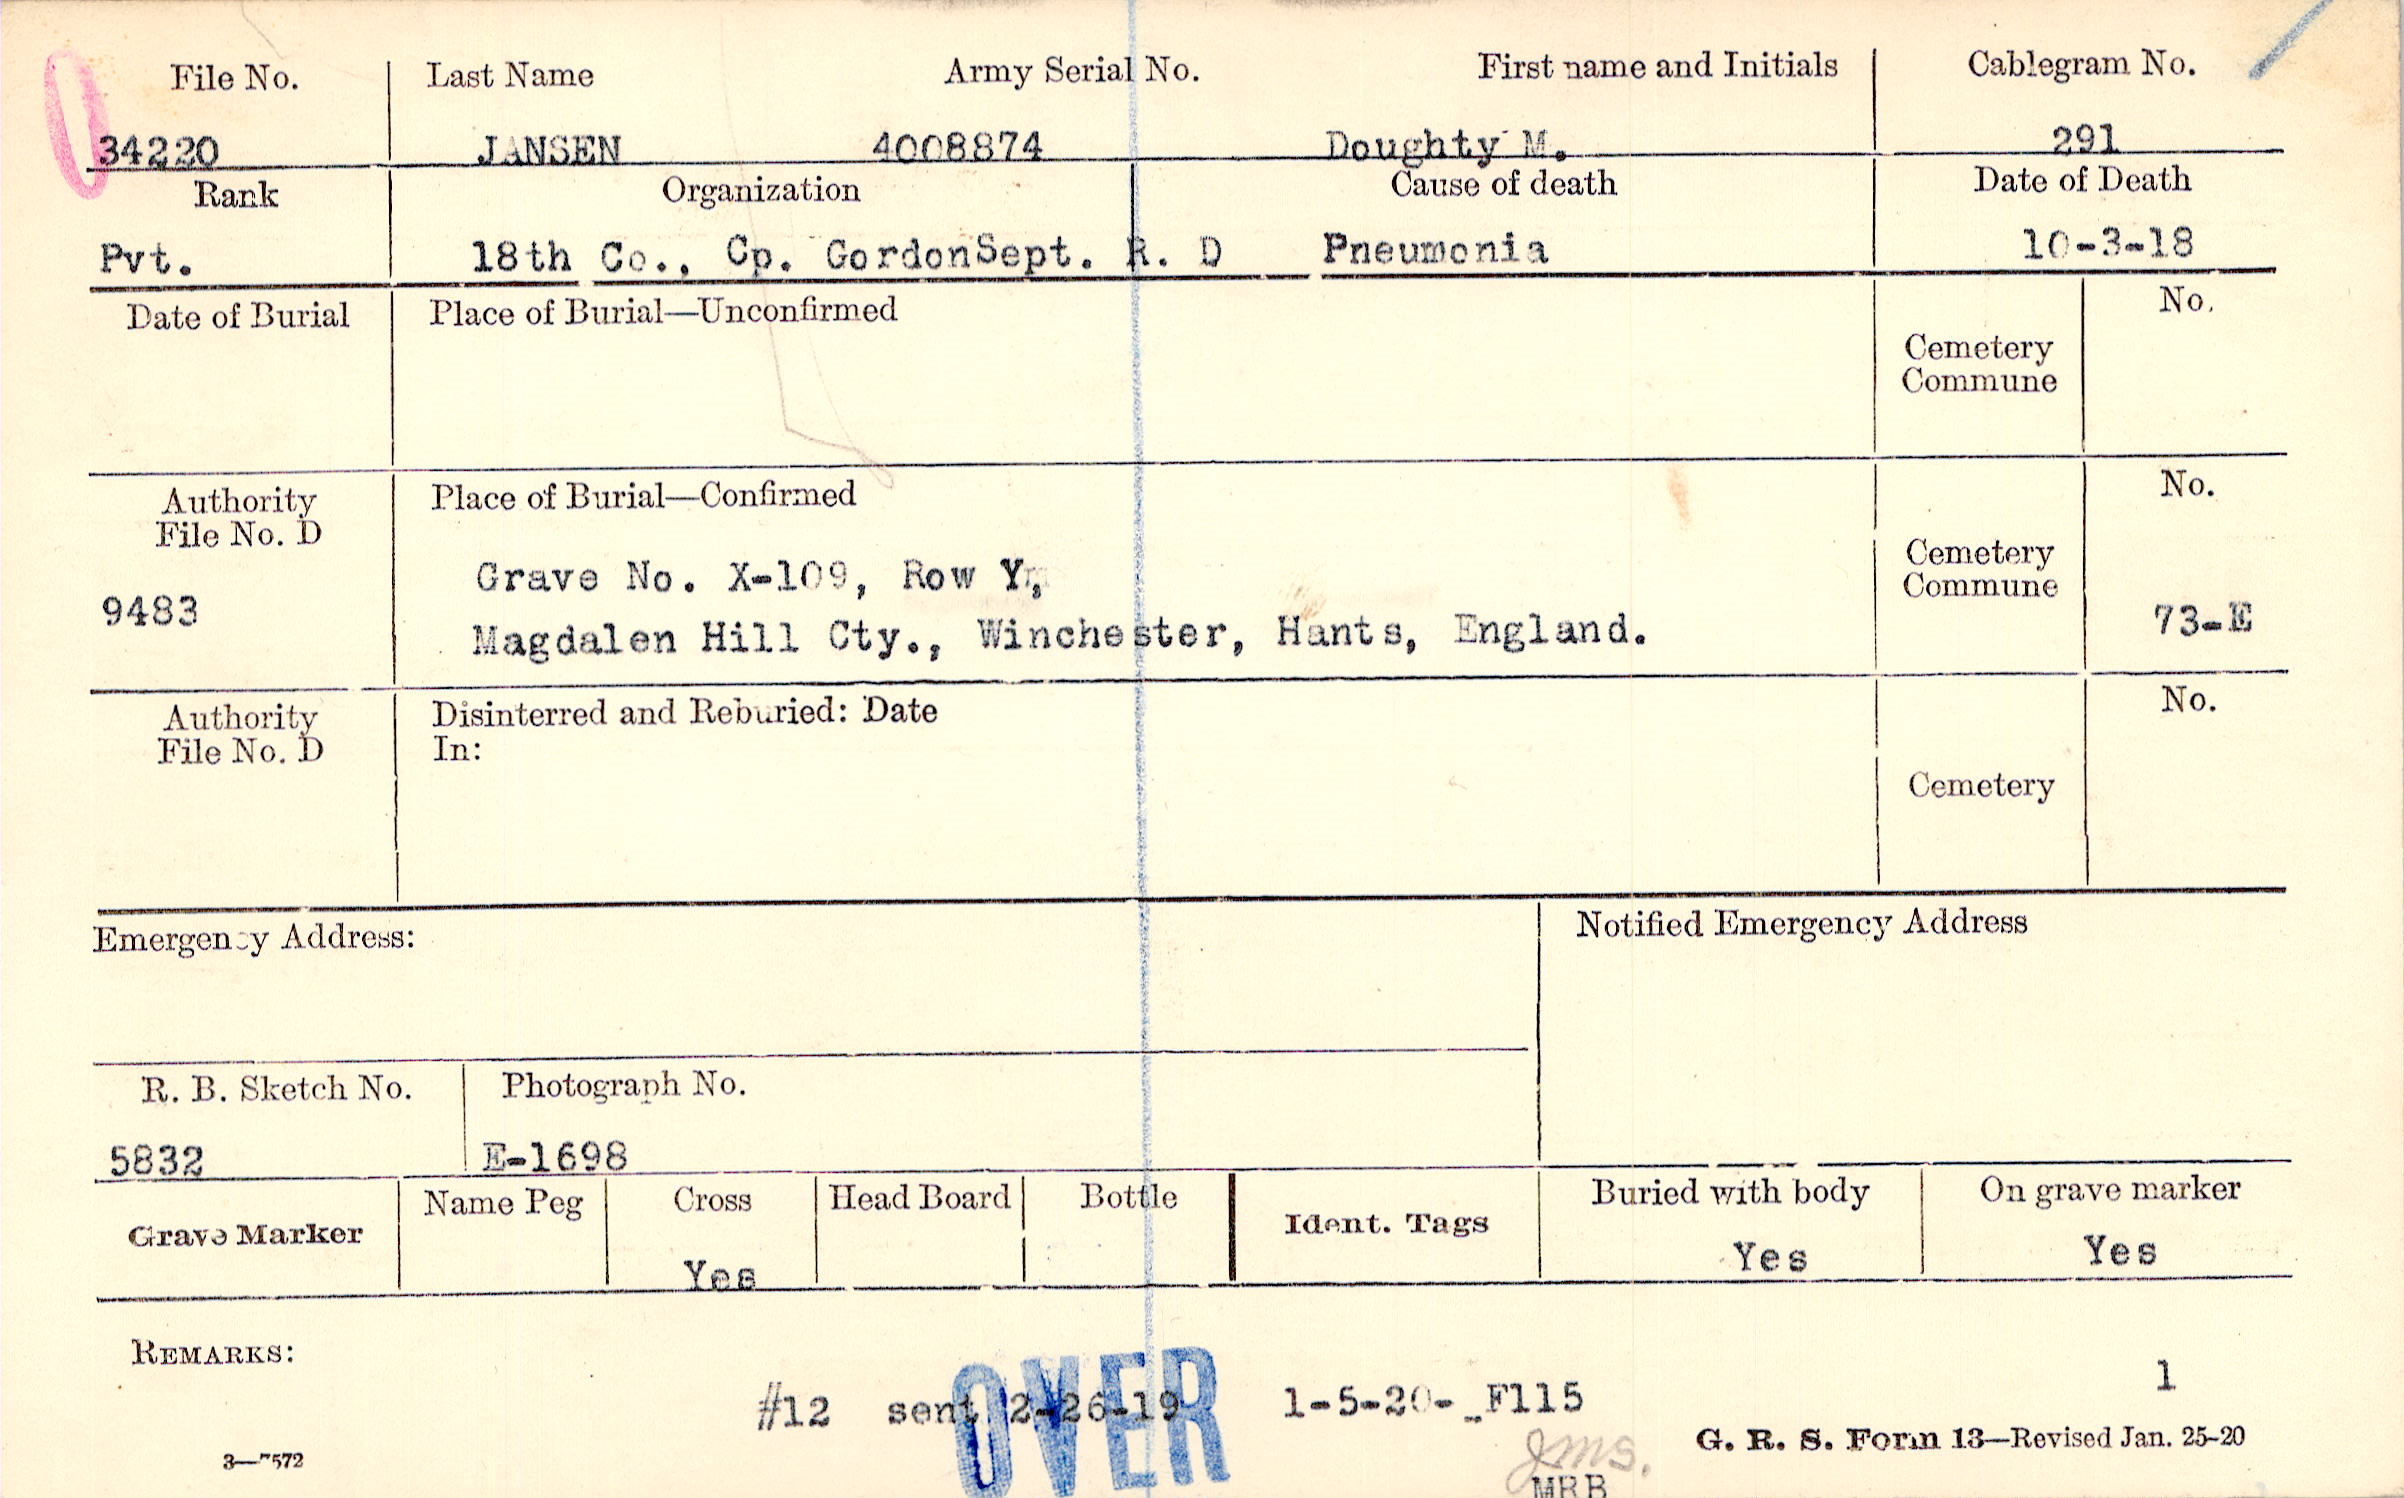 File No. Last Name Army Serial No. First name and Initials Cablegram No.
34220 JANSEN 4008874 Doughty M. 291
Rank Organization Cause of death Date of Death
Pvt. 18th Co., Cp. GordonSept. R. D Pneumonia 10-3-18
Date of Burial Place of Burial—Unconfirmed No.
Cemetery
Commune
Authority Place of Burial—Confirmed No.
File No. D
Grave No. X-109, Row Y, Cemetery
Commune
9483 Magdalen Hill Cty., Winchester, Hants, England. 73-E
Authority Disinterred and Reburied: Date No.
File No. D In:
Cemetery
Emergency Address: Notified Emergency Address
R. B. Sketch No. Photograph No.
5832 E-1698
Grave Marker Name Peg Cross Head Board Bottle Ident. Tags Buried with body On grave marker
Yes Yes Yes
REMARKS: 1
#12 sent 2-26-19 1-5-20- F115
OVER
G. R. S. Form 13—Revised Jan. 25-20
3—7572 JMS.
MRB